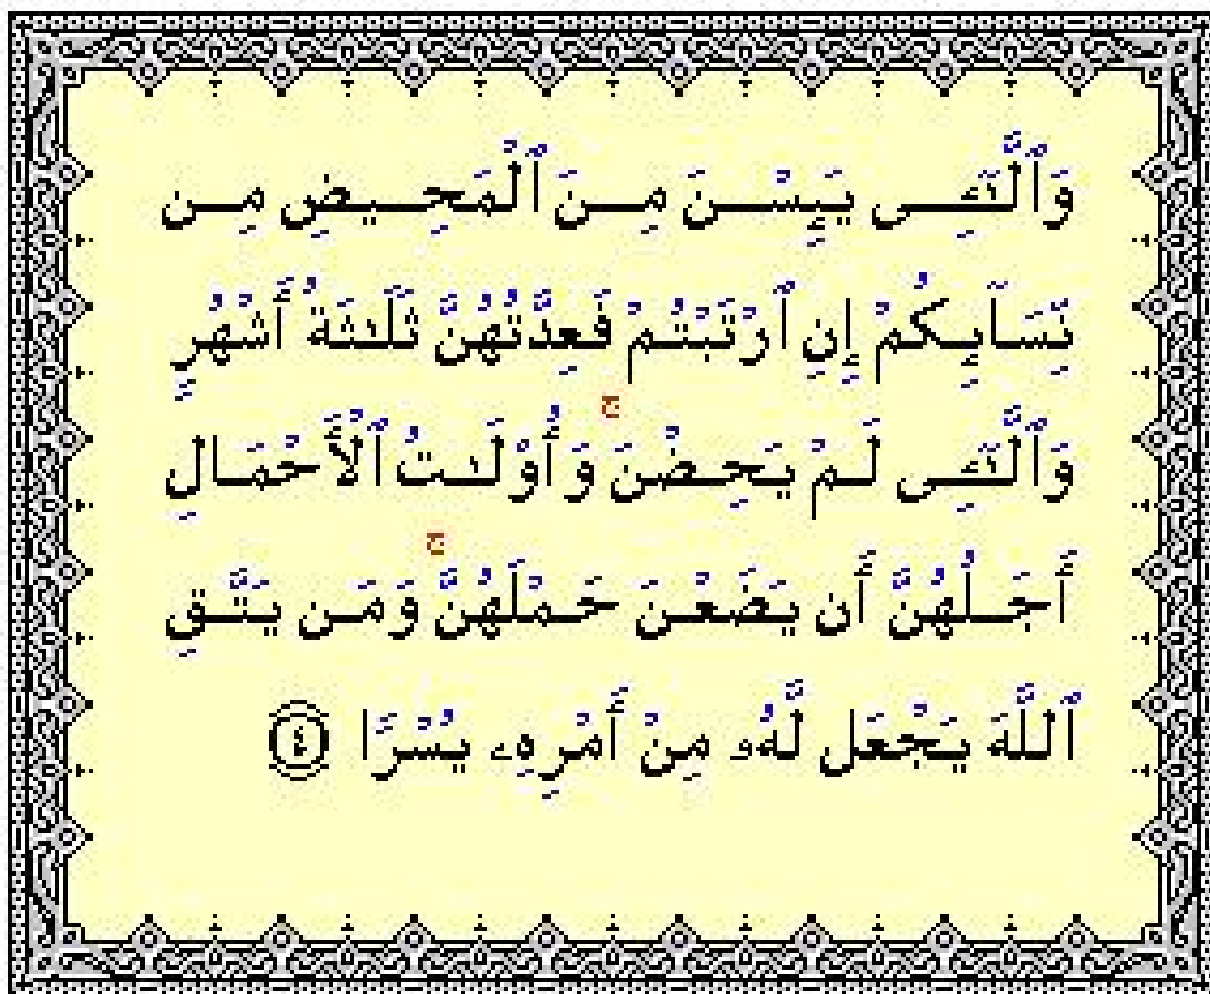 وَٱلَّٰٓـِٔى يَئِسْنَ مِنَ ٱلْمَحِيضِ مِن
نِّسَآئِكُمْ إِنِ ٱرْتَبْتُمْ فَعِدَّتُهُنَّ ثَلَٰثَةُ أَشْهُرٍ
وَٱلَّٰٓـِٔى لَمْ يَحِضْنَ ۚ وَأُو۟لَٰتُ ٱلْأَحْمَالِ
أَجَلُهُنَّ أَن يَضَعْنَ حَمْلَهُنَّ ۚ وَمَن يَتَّقِ
ٱللَّهَ يَجْعَل لَّهُۥ مِنْ أَمْرِهِۦ يُسْرًا ٤